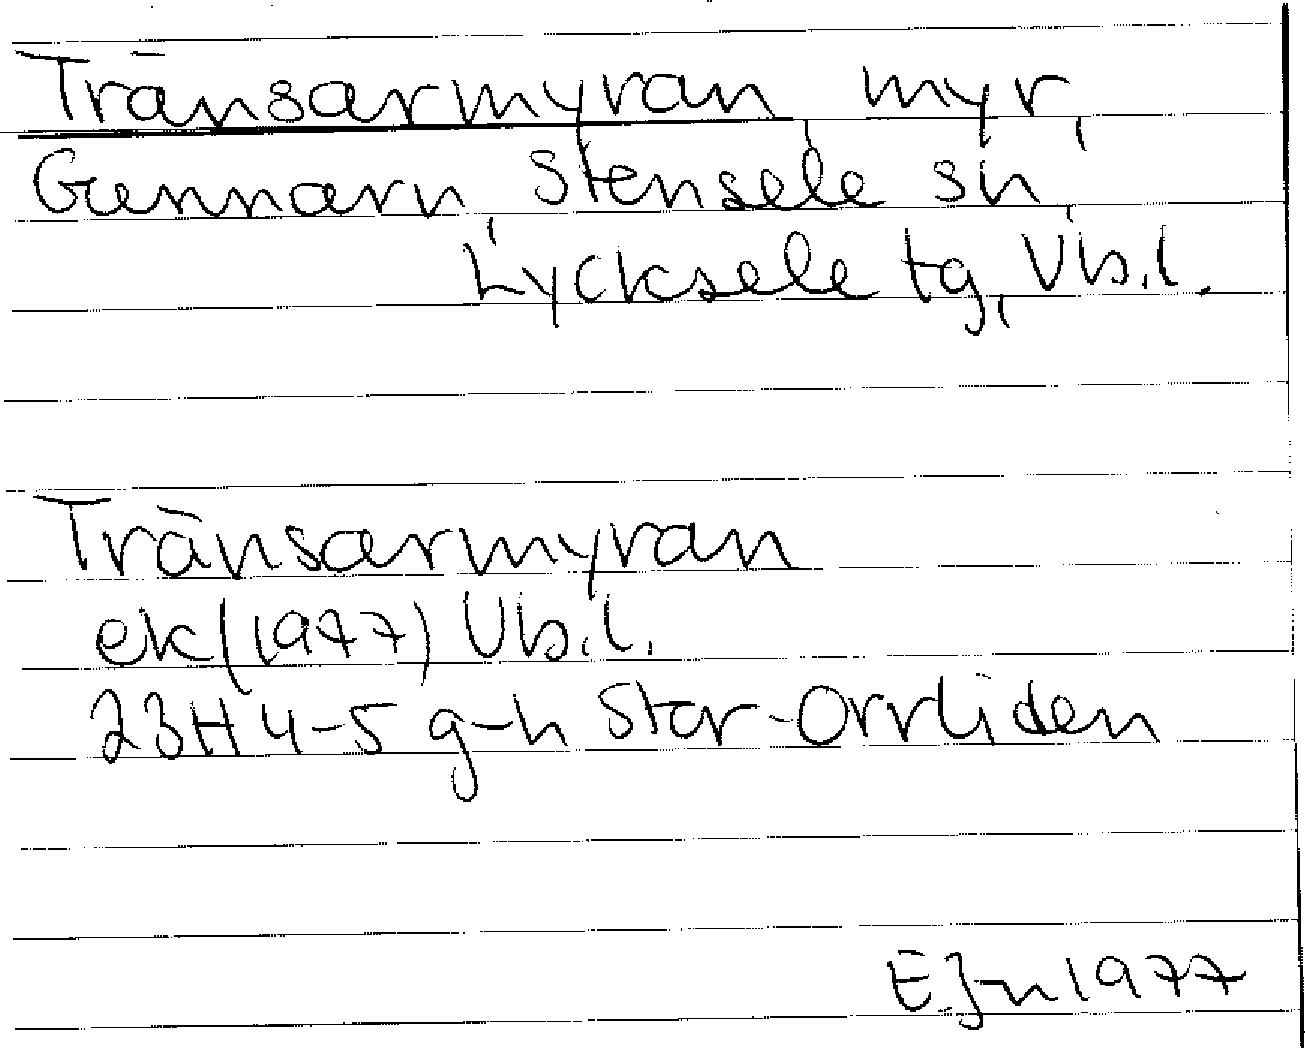 Tränsarmyran myr,
Gunnarn, Stensele sn,
Lycksele tg, Vb.l.
Tränsarmyran
ek (1977) Vb.l.
23H 4-5 g-h Stor-Orrliden
E.Jn 1977